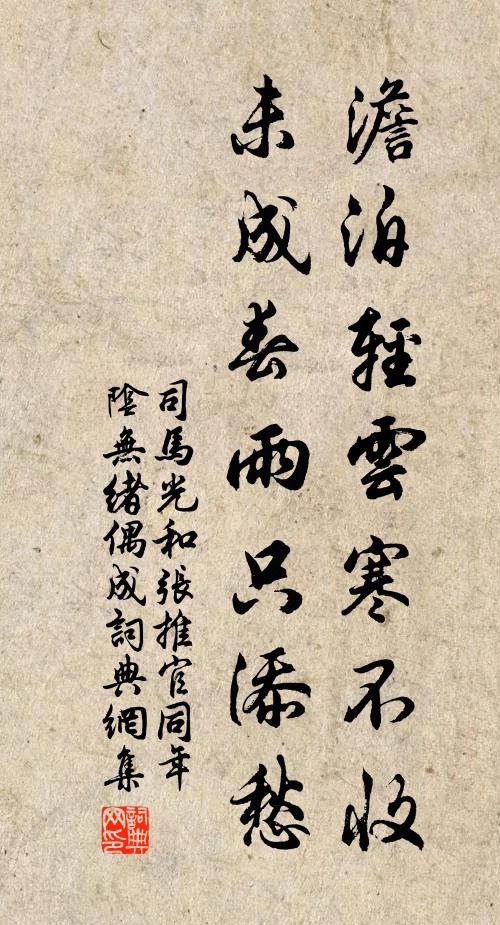 澹泊輕雲寒不收
未成春雨只添愁
司馬光和張推官同年
陰無緒偶成詞典網集
詞典網印